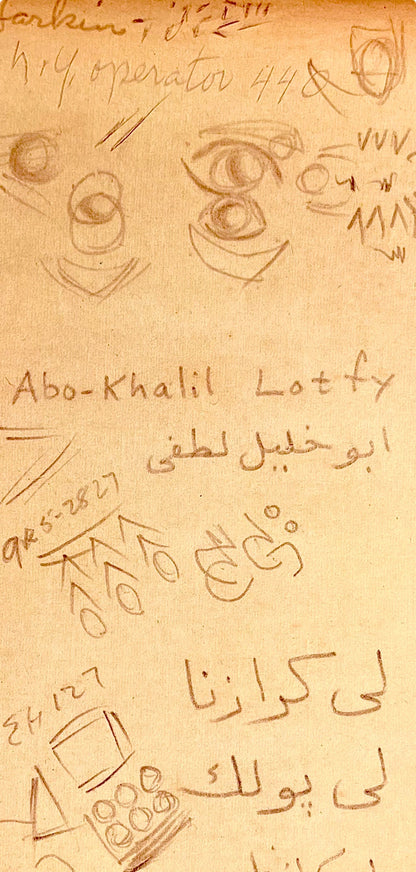 Larkin -
N.Y. operator 44
Abo-Khalil Lotfy
ابو خليل لطفى
GR5-2827
لى كرازنا
EH 127
لى يولك